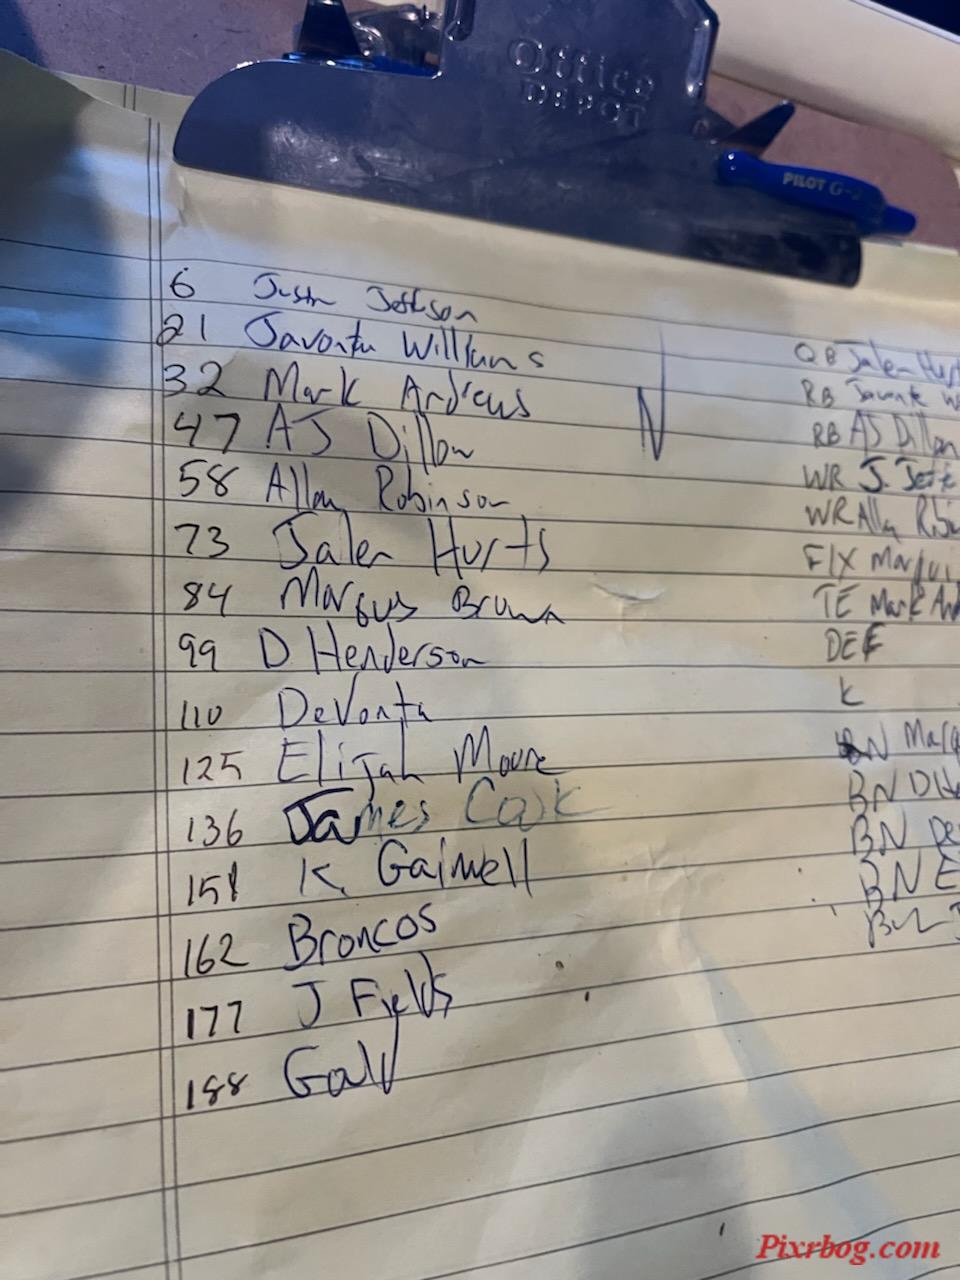 Office
DEPOT
PILOT G-2
6 Justn Jeffson
21 Javonta Williams
32 Mark Andrews
47 AJ Dillon
58 Allan Robinson
73 Jalen Hurts
84 Marqus Brown
99 D Henderson
110 DeVonta
125 Elijah Moore
136 James Cook
151 K. Gainwell
162 Broncos
177 J Fields
188 Gould
N
QB Jalen Hurt
RB Javonte W
RB AJ Dillon
WR J. Jeff
WR Alln Robin
FlX Marqui
TE Mark An
DEF
K
BN Marq
BN DHe
BN De
BN E
BN J
Pixrbog.com